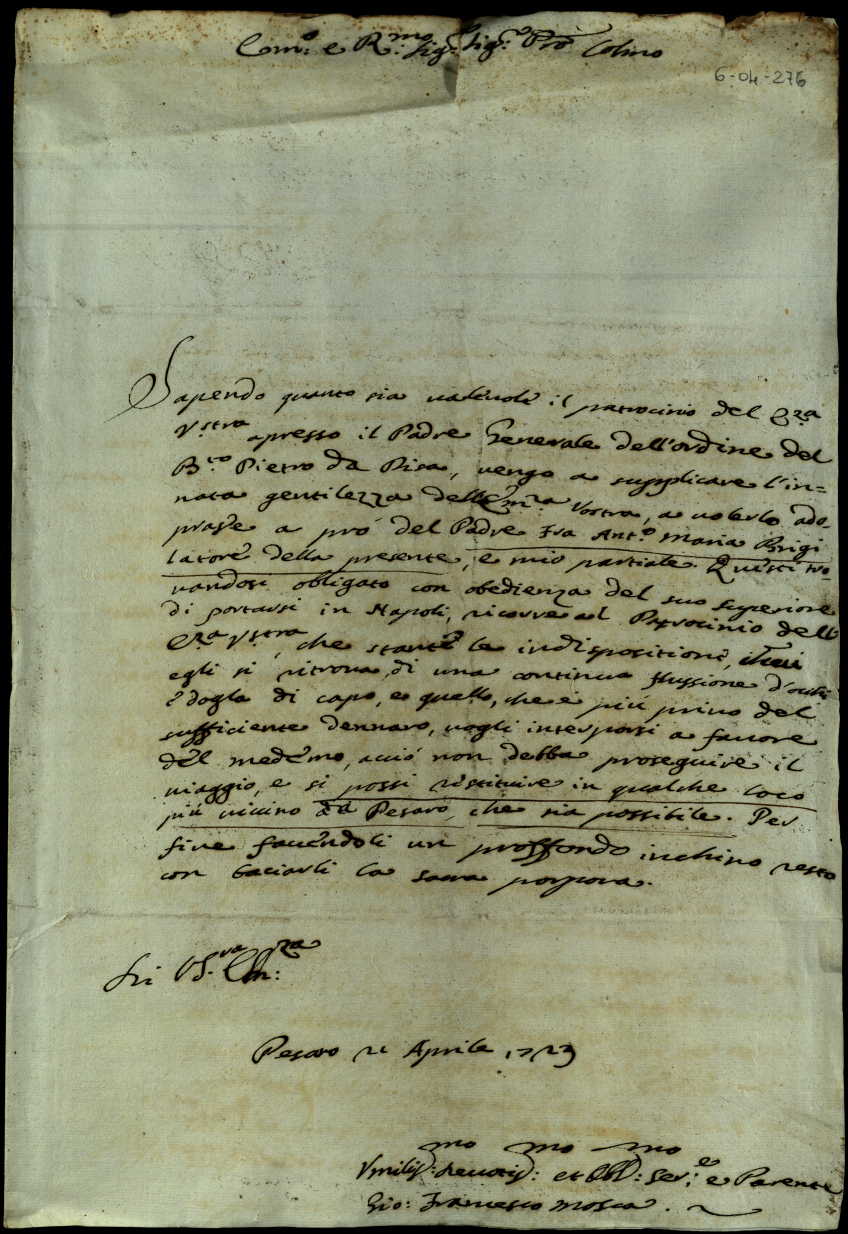 Em.o e R.mo Sig.r Sig.re Pro͞n Colmo
6-04-276
Sapendo quanto sia valevole il patrocinio del E.za
V.stra apresso il Padre Generale dell'ordine del
B.to Pietro da Pisa, vengo a supplicare l'in=
nata gentilezza dell'Em.za Vostra, a volerlo ado-
prare a pró del Padre Fra Ant.o Maria Brigi
latore della presente, e mio partiale. Questi tro-
vandosi obligato con obedienza del suo superiore
di portarsi in Napoli, ricorre al Patrocinio dell
E.za V.stra, che stante le indispositioni, che
egli si ritrova, di una continua flussione d'ochi
e dogla di capo, e quello, che è più privo del
sufficiente dennaro, vogli interporsi a favore
del medemo, acciò non debba proseguire il
viaggio, e si possi restituire in qualche loco
più vicino da Pesaro, che sia possibile. Per
fine facendoli un proffondo inchino resto
con baciarli la sacra porpora.
Di V.stra Em.za
Pesaro 21 Aprile 1723
Umilis.mo Devotis.mo et Obl.mo Ser.e e Parente
Gio: Francesco Mosca.